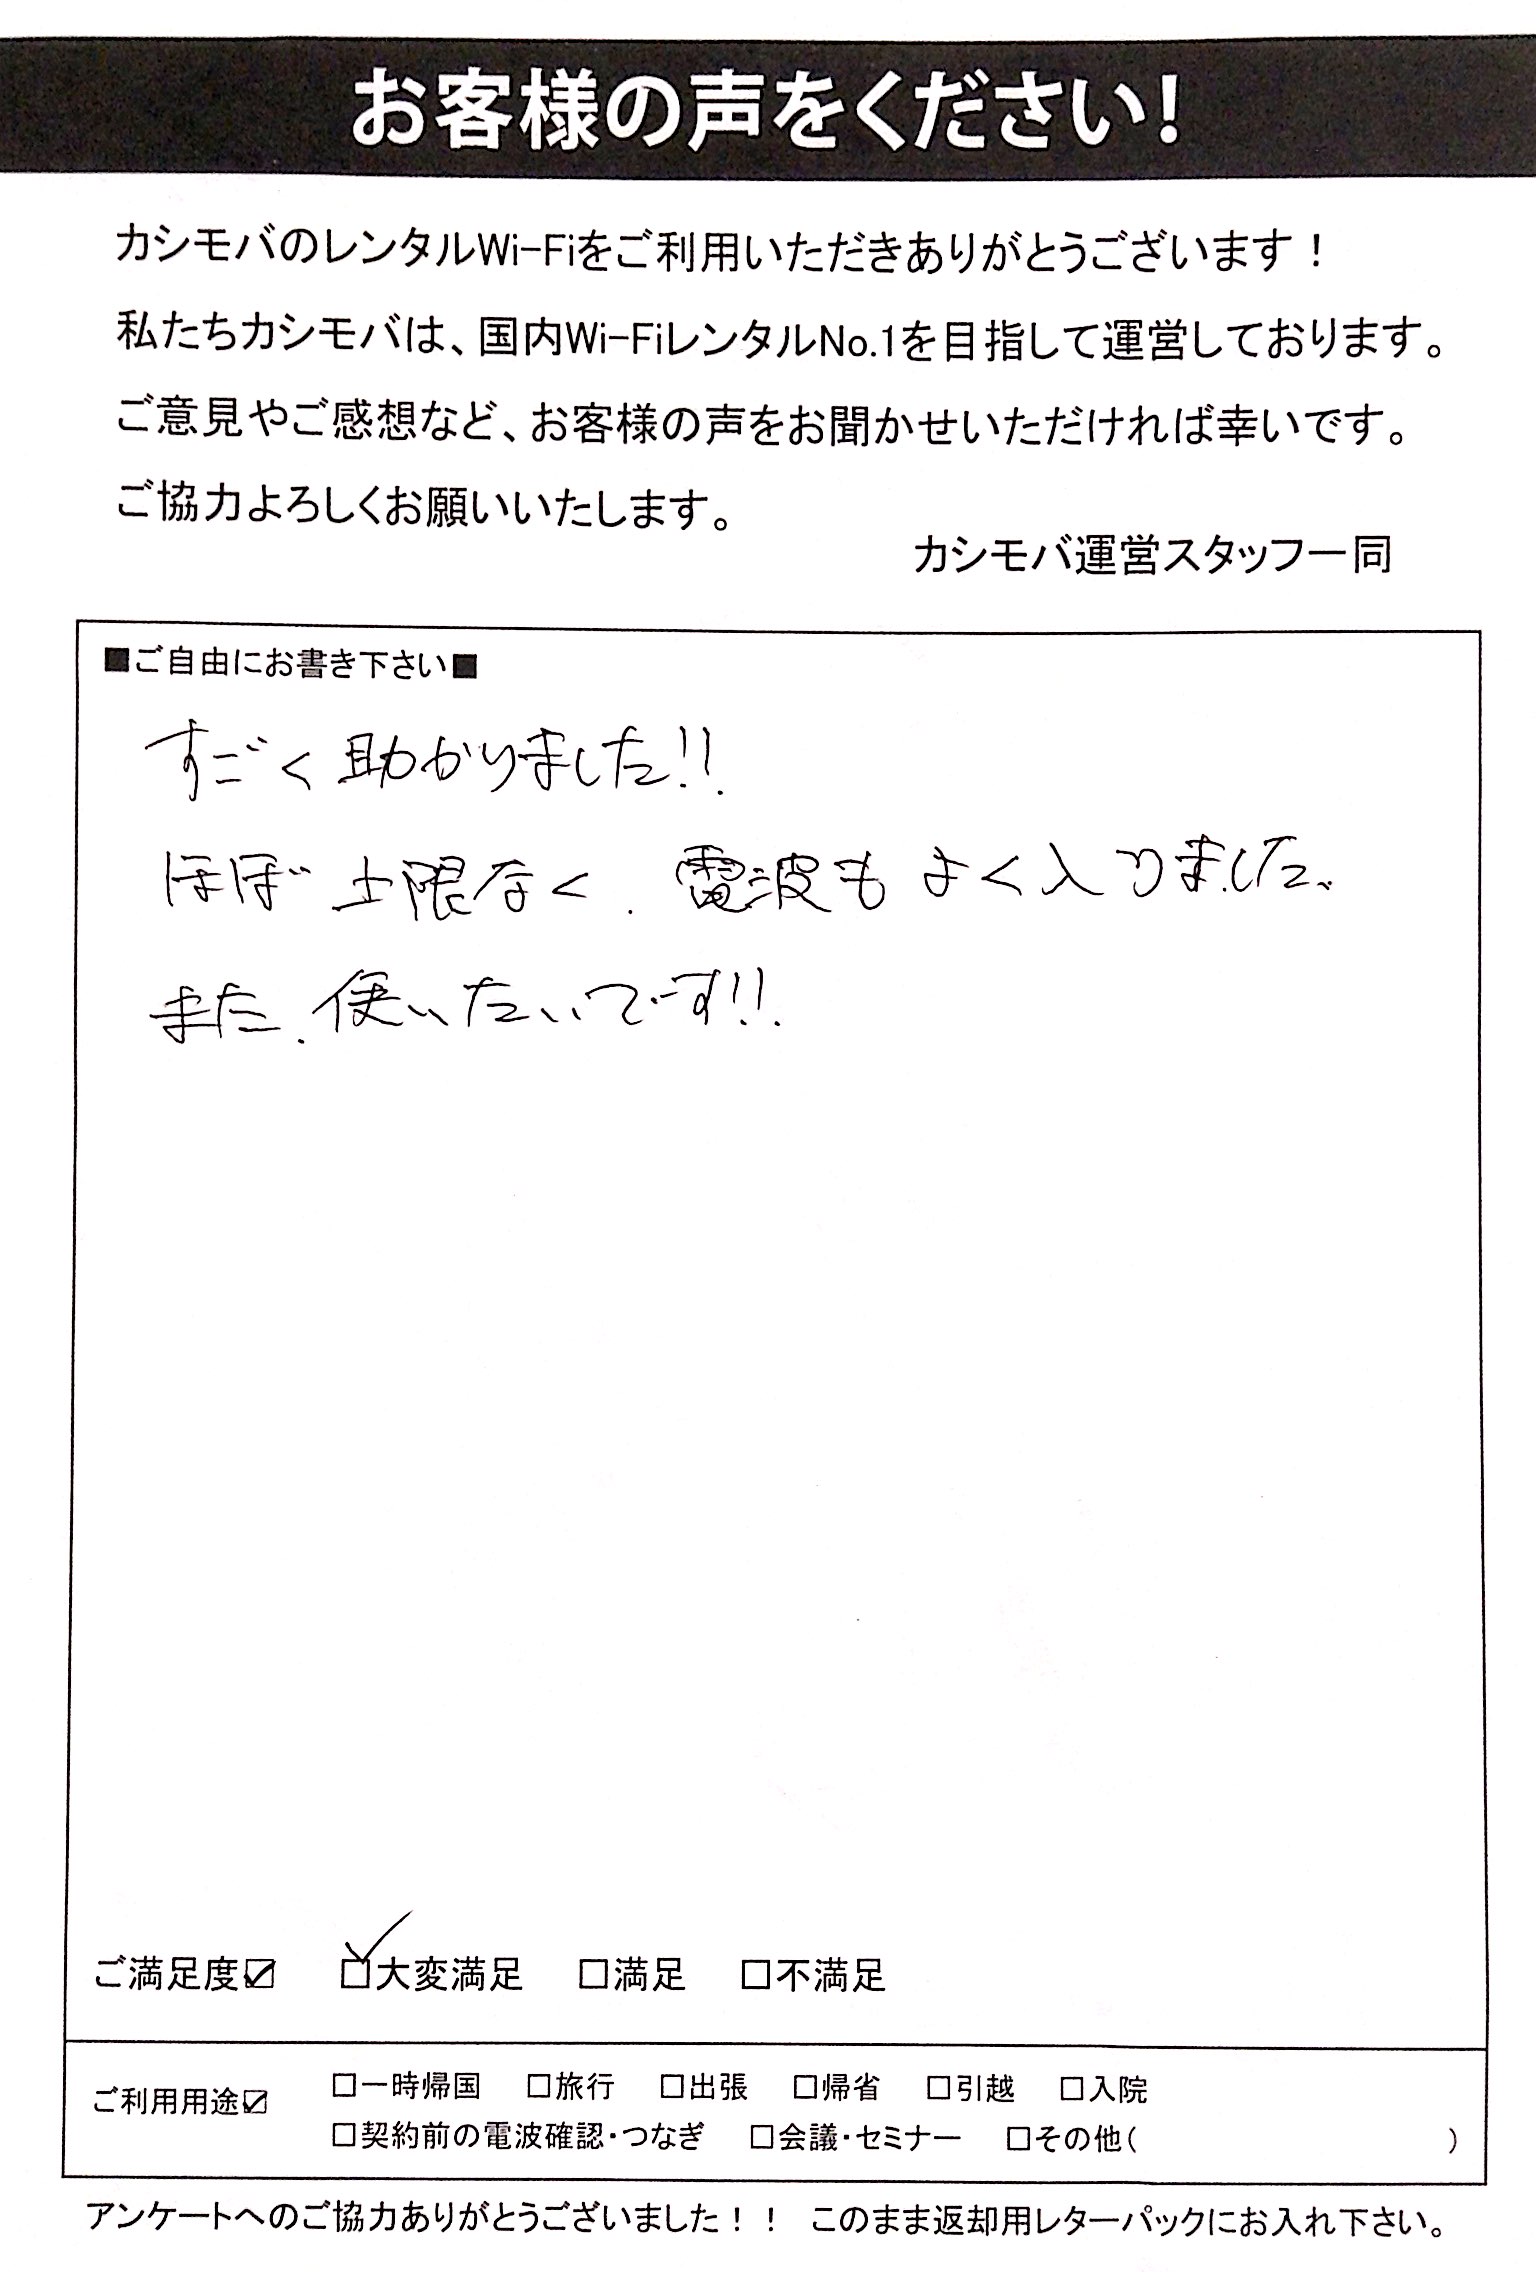 お客様の声をください!
カシモバのレンタルWi-Fiをご利用いただきありがとうございます！
私たちカシモバは、国内Wi-FiレンタルNo.1を目指して運営しております。
ご意見やご感想など、お客様の声をお聞かせいただければ幸いです。
ご協力よろしくお願いいたします。
カシモバ運営スタッフ一同
■ご自由にお書き下さい■
すごく助かりました!!
ほぼ上限なく、電波もよく入りました。
また、使いたいです!!
ご満足度☑ □大変満足 □満足 □不満足
ご利用用途☑ □一時帰国 □旅行 □出張 □帰省 □引越 □入院
□契約前の電波確認・つなぎ □会議・セミナー □その他( )
アンケートへのご協力ありがとうございました！！ このまま返却用レターパックにお入れ下さい。